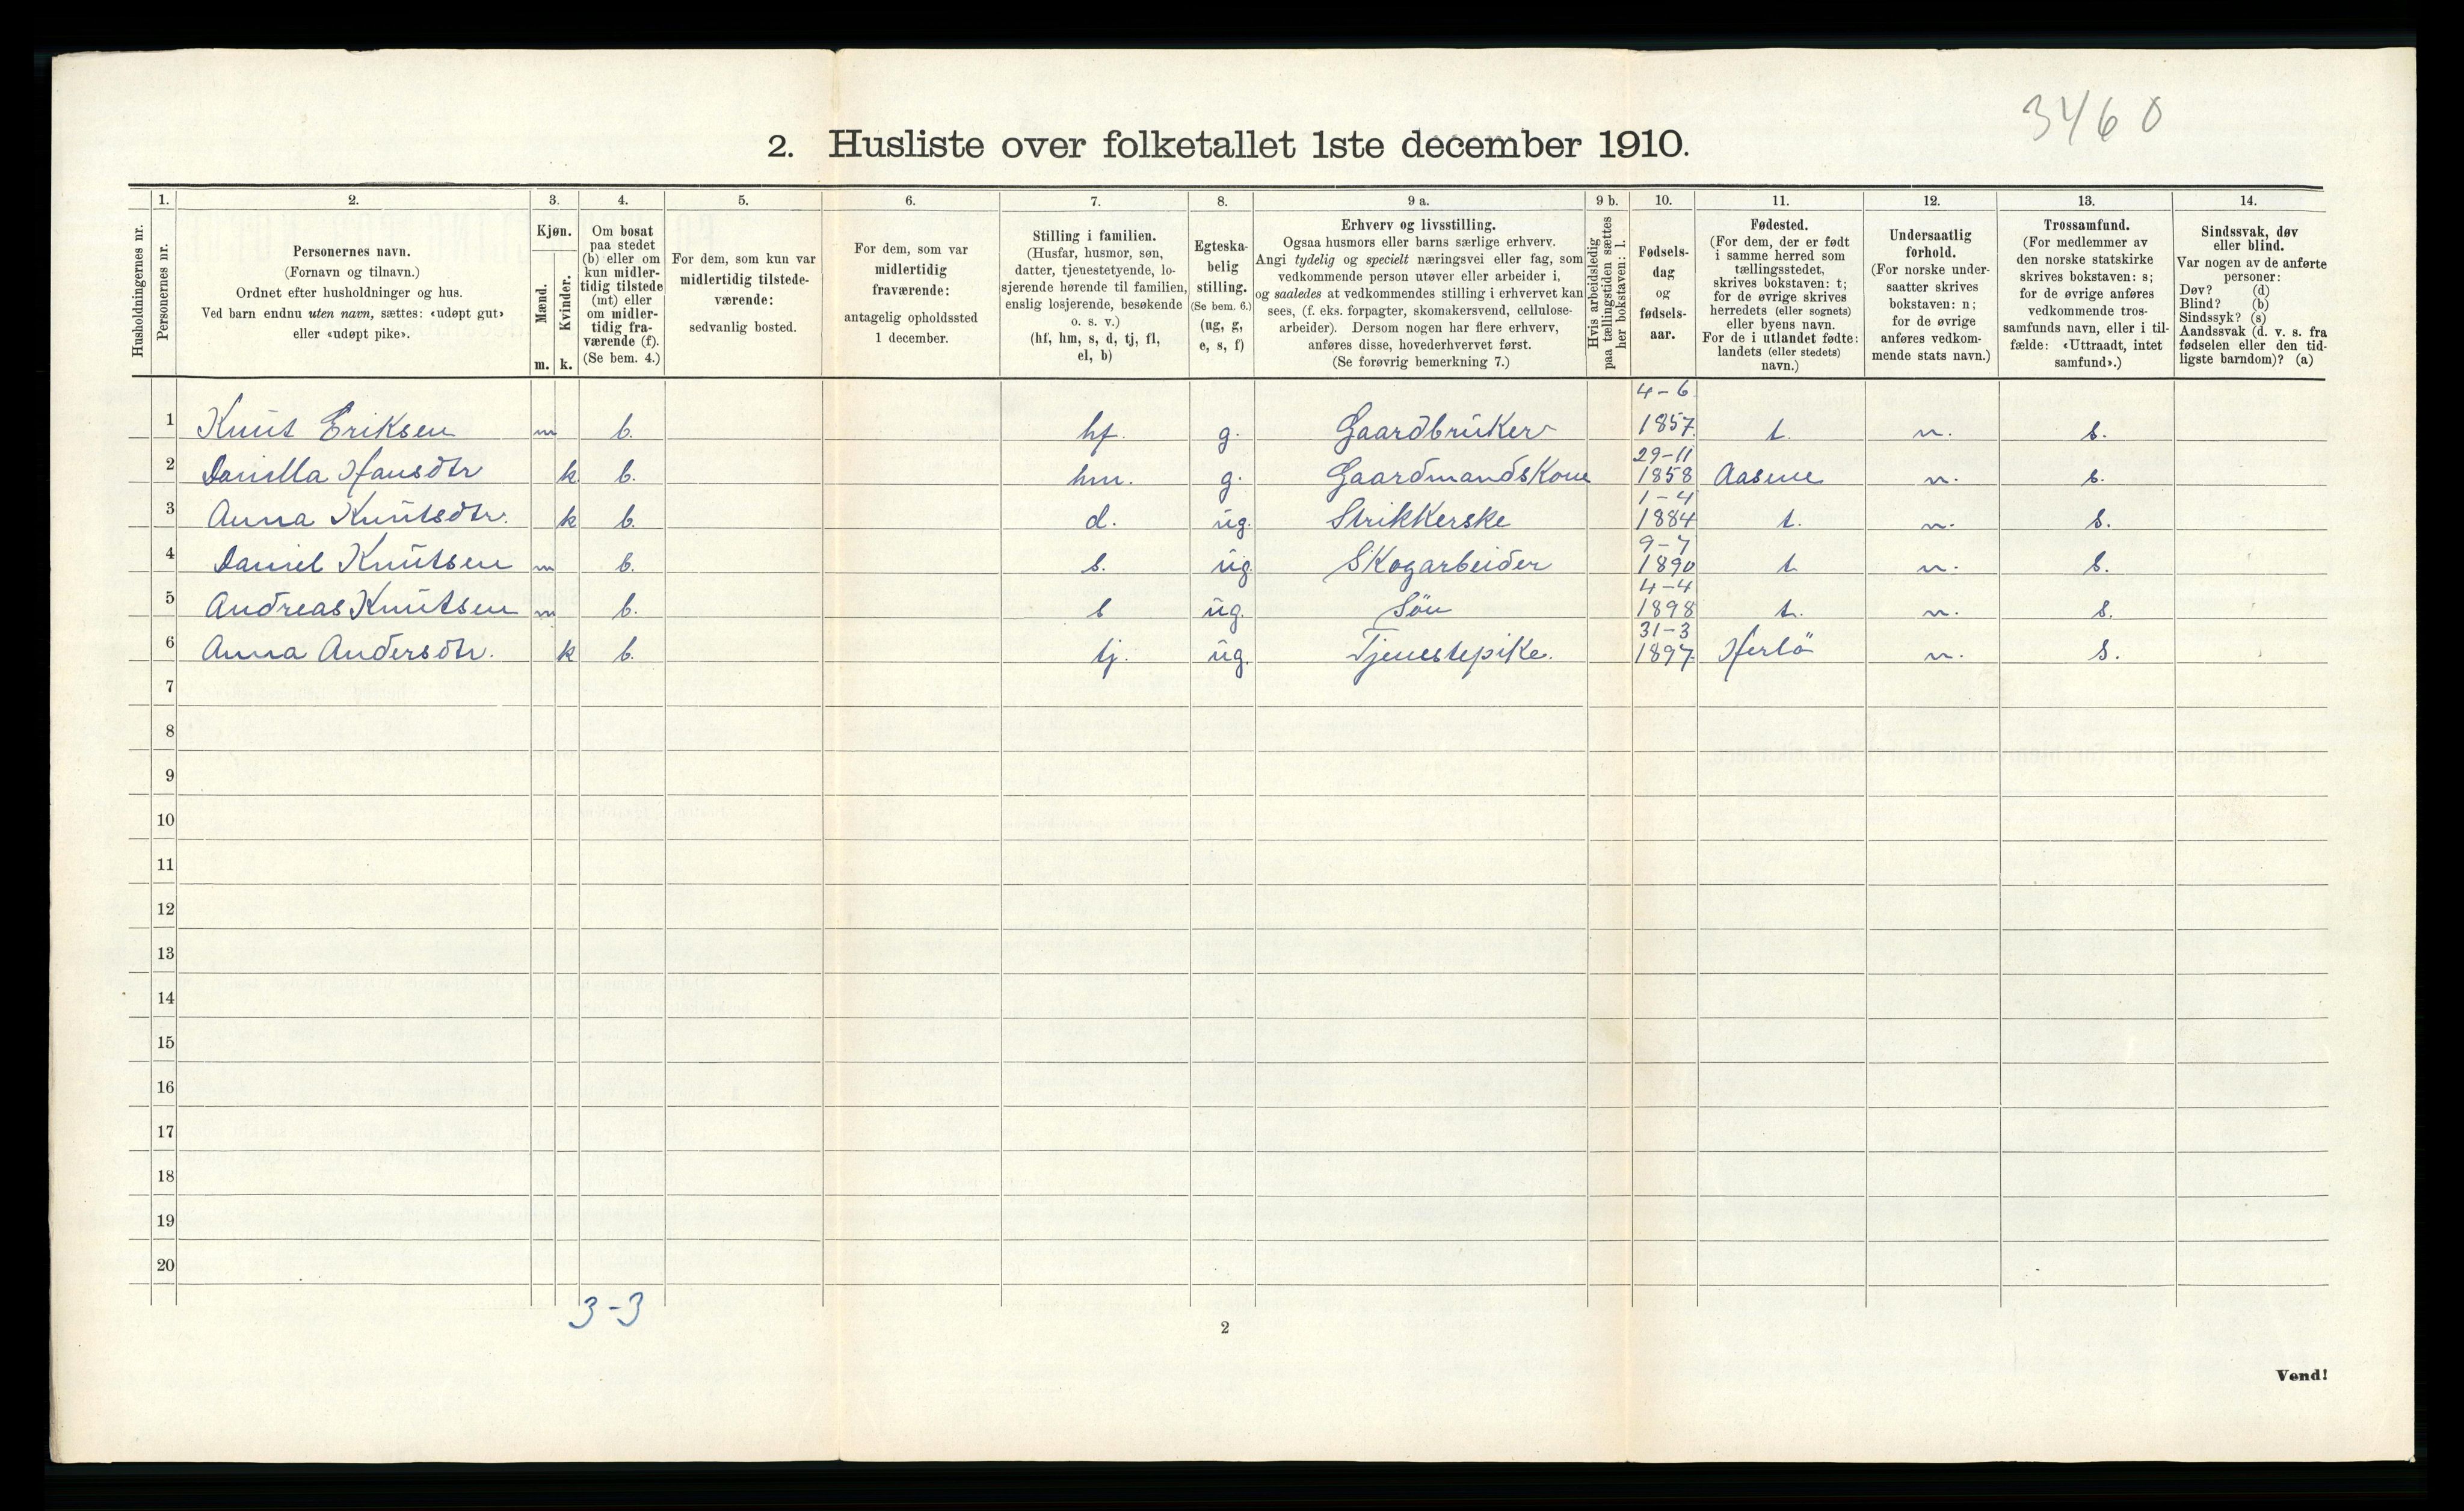 3460
2. Husliste over folketallet 1ste december 1910.
Husholdningernes nr.
1.
Personernes nr.
2.
Personernes navn.
(Fornavn og tilnavn.)
Ordnet efter husholdninger og hus.
Ved barn endnu uten navn, sættes: «udøpt gut»
eller «udøpt pike».
3.
Kjøn.
Mænd.
Kvinder.
m. k.
4.
Om bosat
paa stedet
(b) eller om
kun midler-
tidig tilstede
(mt) eller
om midler-
tidig fra-
værende (f).
(Se bem. 4.)
5.
For dem, som kun var
midlertidig tilstede-
værende:
sedvanlig bosted.
6.
For dem, som var
midlertidig
fraværende:
antagelig opholdssted
1 december.
7.
Stilling i familien.
(Husfar, husmor, søn,
datter, tjenestetyende, lo-
sjerende hørende til familien,
enslig losjerende, besøkende
o. s. v.)
(hf, hm, s, d, tj, fl,
el, b)
8.
Egteska-
belig
stilling.
(Se bem. 6.)
(ug, g,
e, s, f)
9 a.
Erhverv og livsstilling.
Ogsaa husmors eller barns særlige erhverv.
Angi tydelig og specielt næringsvei eller fag, som
vedkommende person utøver eller arbeider i,
og saaledes at vedkommendes stilling i erhvervet kan
sees, (f. eks. forpagter, skomakersvend, cellulose-
arbeider). Dersom nogen har flere erhverv,
anføres disse, hovederhvervet først.
(Se forøvrig bemerkning 7.)
9 b.
Hvis arbeidsledig
paa tællingstiden sættes
her bokstaven: l.
10.
Fødsels-
dag
og
fødsels-
aar.
11.
Fødested.
(For dem, der er født
i samme herred som
tællingsstedet,
skrives bokstaven: t;
for de øvrige skrives
herredets (eller sognets)
eller byens navn.
For de i utlandet fødte:
landets (eller stedets)
navn.)
12.
Undersaatlig
forhold.
(For norske under-
saatter skrives
bokstaven: n;
for de øvrige
anføres vedkom-
mende stats navn.)
13.
Trossamfund.
(For medlemmer av
den norske statskirke
skrives bokstaven: s;
for de øvrige anføres
vedkommende tros-
samfunds navn, eller i til-
fælde: «Uttraadt, intet
samfund».)
14.
Sindssvak, døv
eller blind.
Var nogen av de anførte
personer:
Døv? (d)
Blind? (b)
Sindssyk? (s)
Aandssvak (d. v. s. fra
fødselen eller den tid-
ligste barndom)? (a)
1 Knut Eriksen m b. hf. g. Gaardbruker 4-6 1857 t. n. s.
2 Danilla Hansdtr k b. hm. g. Gaardmandskone 29-11 1858 Aasene n. s.
3 Anna Knutsdtr. k b. d. ug. Strikkerske 1-4 1884 t. n. s.
4 Daniel Knutsen m b. s. ug. Skogarbeider 9-7 1890 t. n. s.
5 Andreas Knutsen m b. s ug. Søn 4-4 1898 t. n. s.
6 Anna Andersdtr. k b. tj. ug. Tjenestepike. 31-3 1897 Herlö n. s.
7
8
9
10
11
12
13
14
15
16
17
18
19
20
3-3
2
Vend!